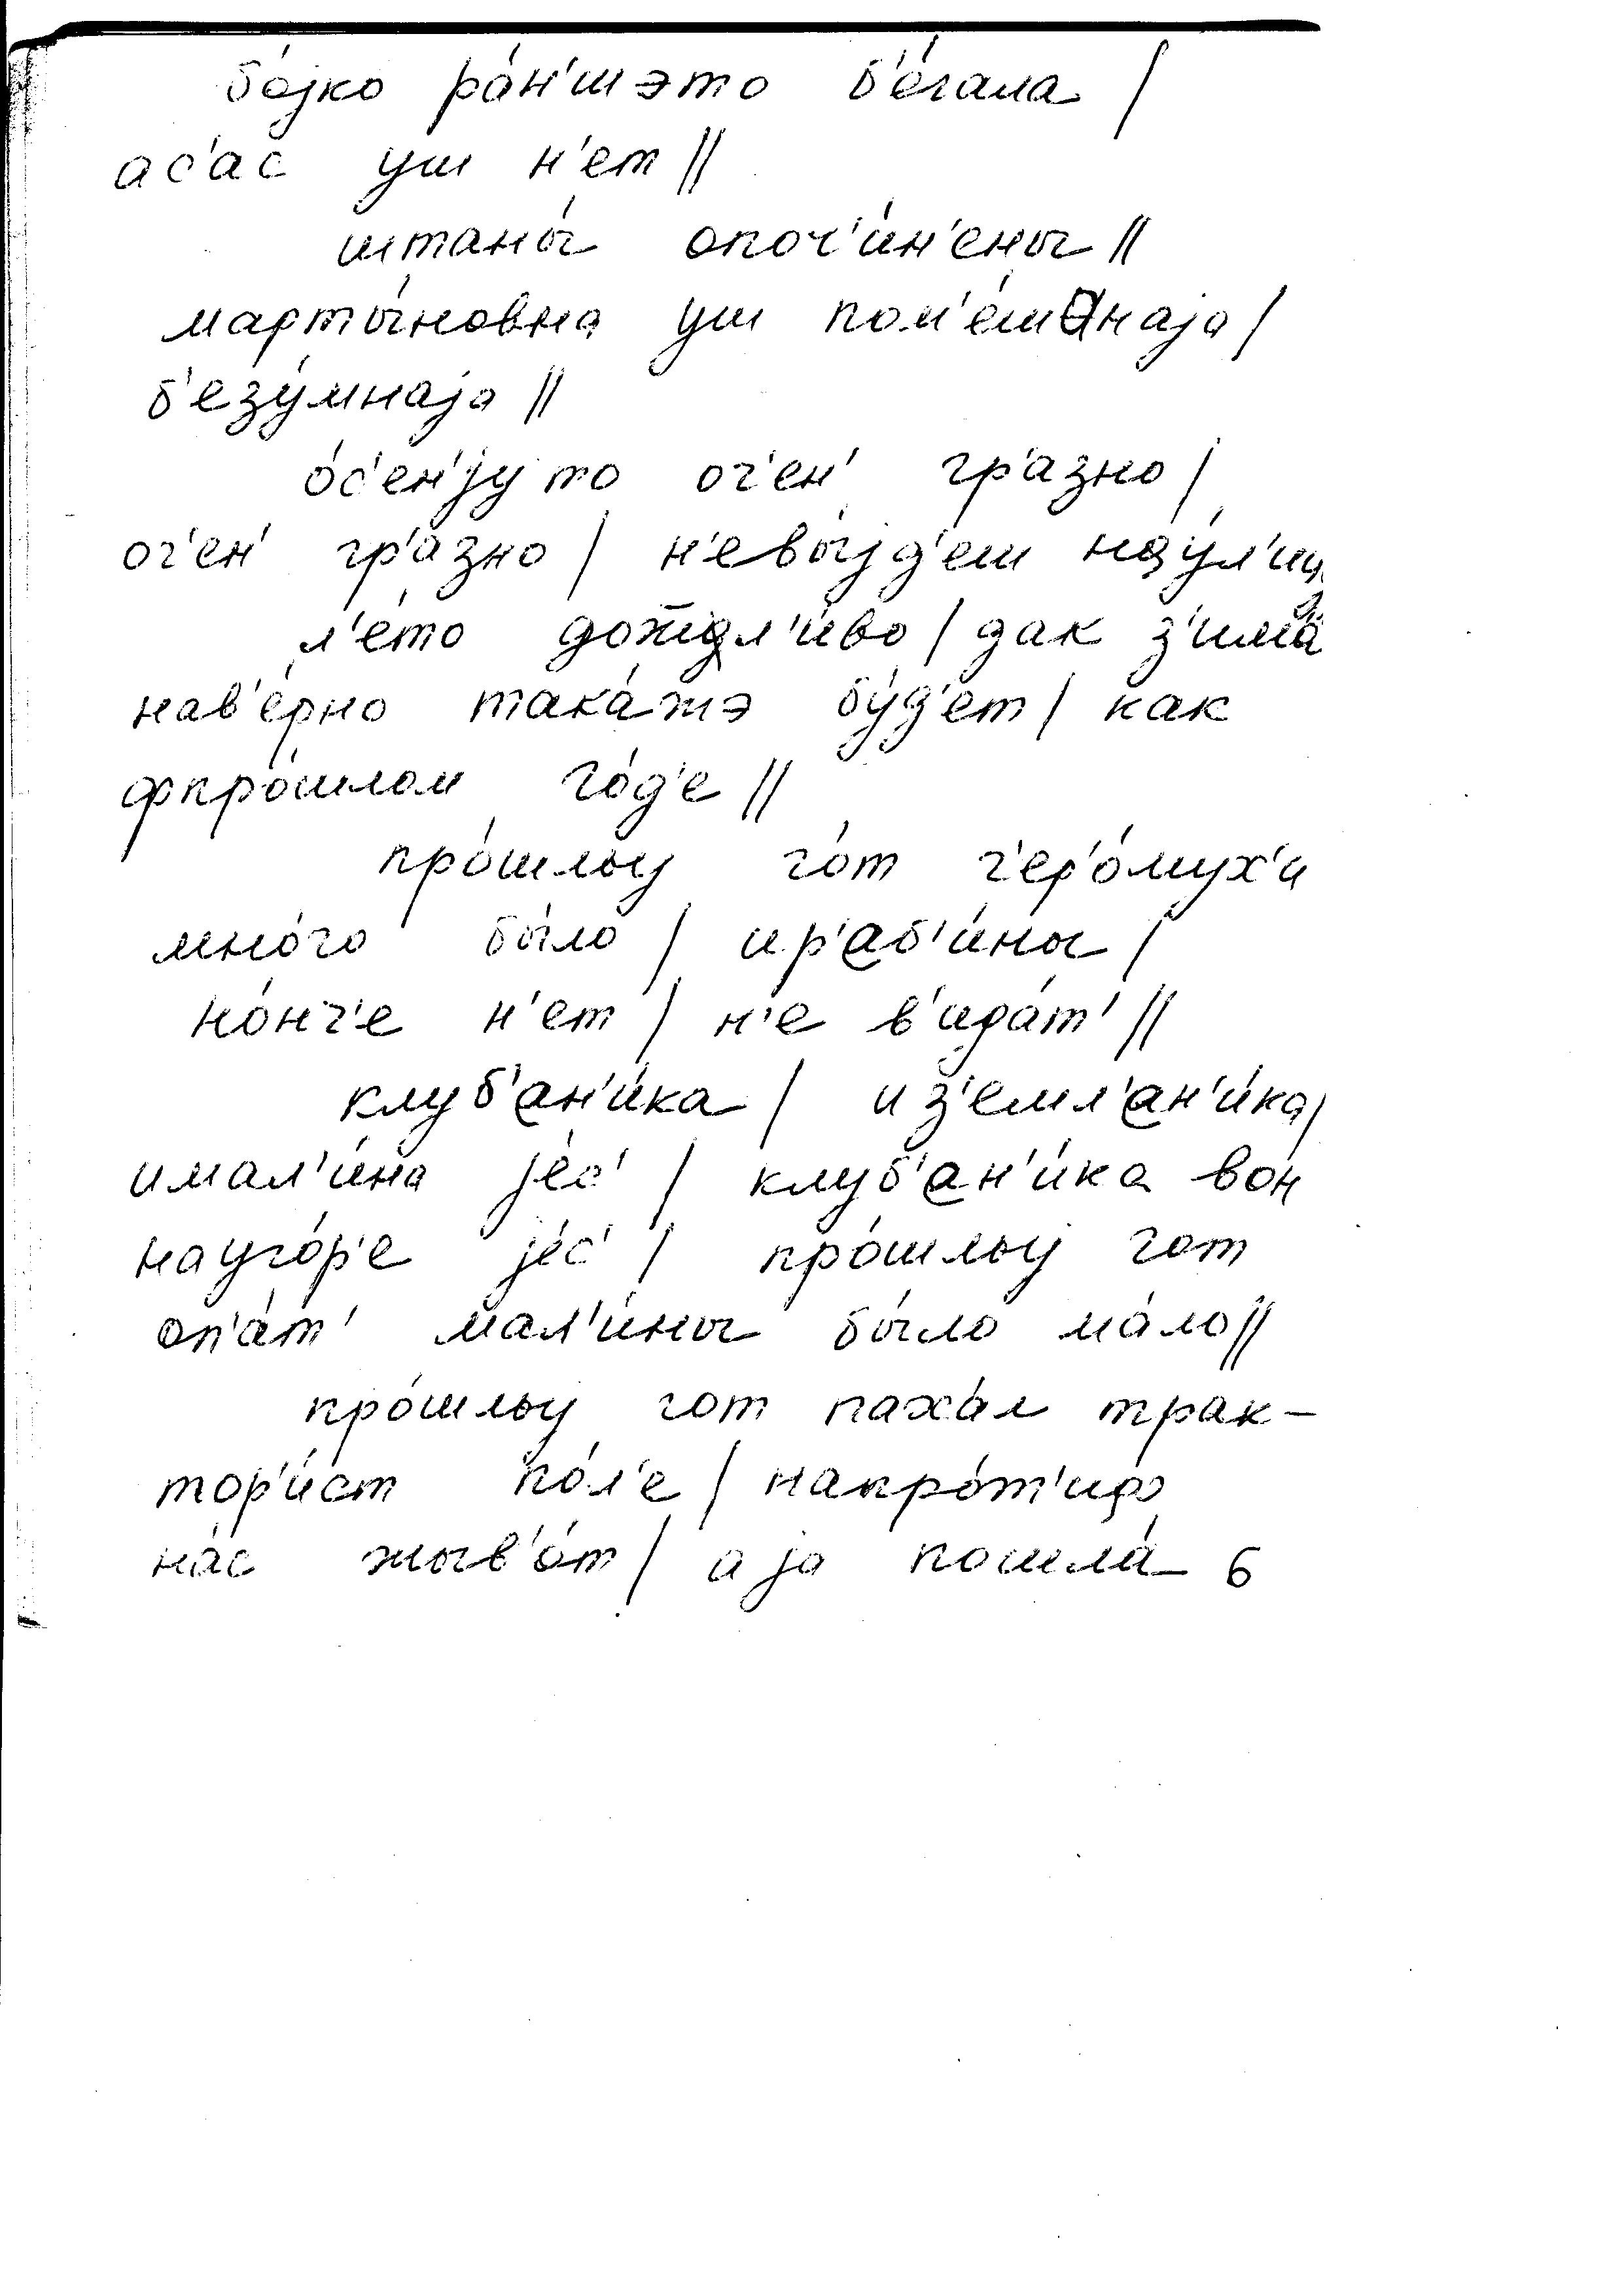 бо́jко ра́н'шэто б'е́гала /
ас'а́с уш н'ет //
штаны́ опоч'и́н'ены //
марты́новна уш пом'е́шанаjа /
б'езу́мнаjа //
о́с'ен'jу то оч'ен' гр'а́зно /
оч'ен' гр'а́зно / н'евы́jд'еш нау́л'иц
л'е́то дождл'и́во / дак з'има́
нав'е́рно така́жэ бу́д'ет / как
фпро́шлом го́д'е //
про́шлыj го́т ч'ер'о́мух'и
мно́го бы́ло / ир'аб'и́ны /
но́нч'е н'ет / н'е в'ида́т' //
клуб'ан'и́ка / и з'емл'ан'и́ка /
имал'и́на jе́с' / клуб'ан'и́ка во́н
науго́р'е jе́с' / про́шлыj гот
оп'а́т' мал'и́ны бы́ло ма́ло //
про́шлыj гот паха́л трак-
тор'и́ст по́л'е / напро́т'иф
на́с жыв'о́т / а jа пошла́ 6